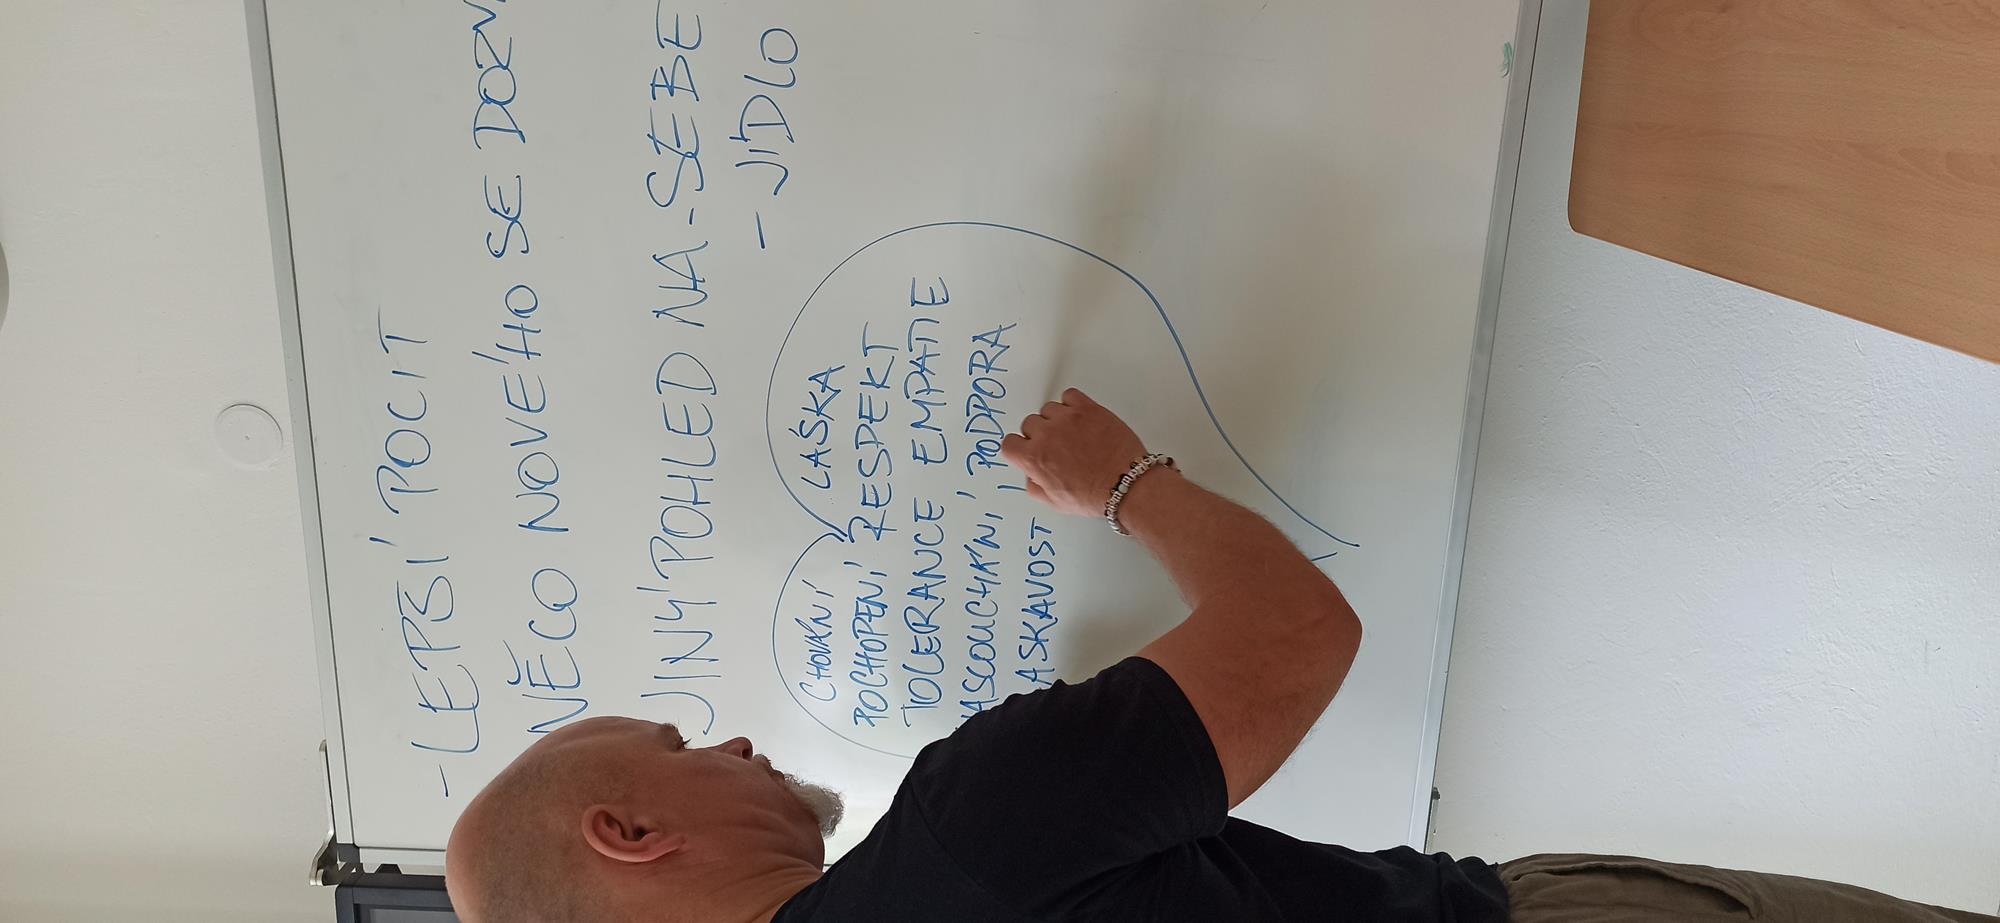 - LEPŠÍ POCIT
NĚCO NOVÉHO SE
JINÝ POHLED NA - SEBE
- JÍDLO
CHOVÁNÍ LÁSKA
POCHOPENÍ RESPEKT
TOLERANCE EMPATIE
PODPORA